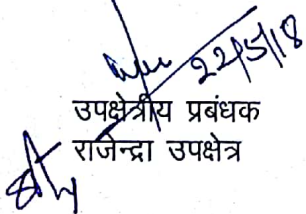 22/5/18
उपक्षेत्रीय प्रबंधक
राजेन्द्रा उपक्षेत्र